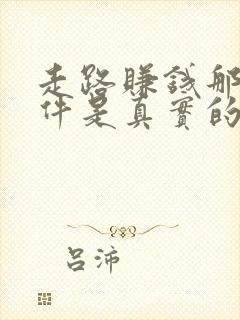 走路賺錢那
件是真實的
呂沛